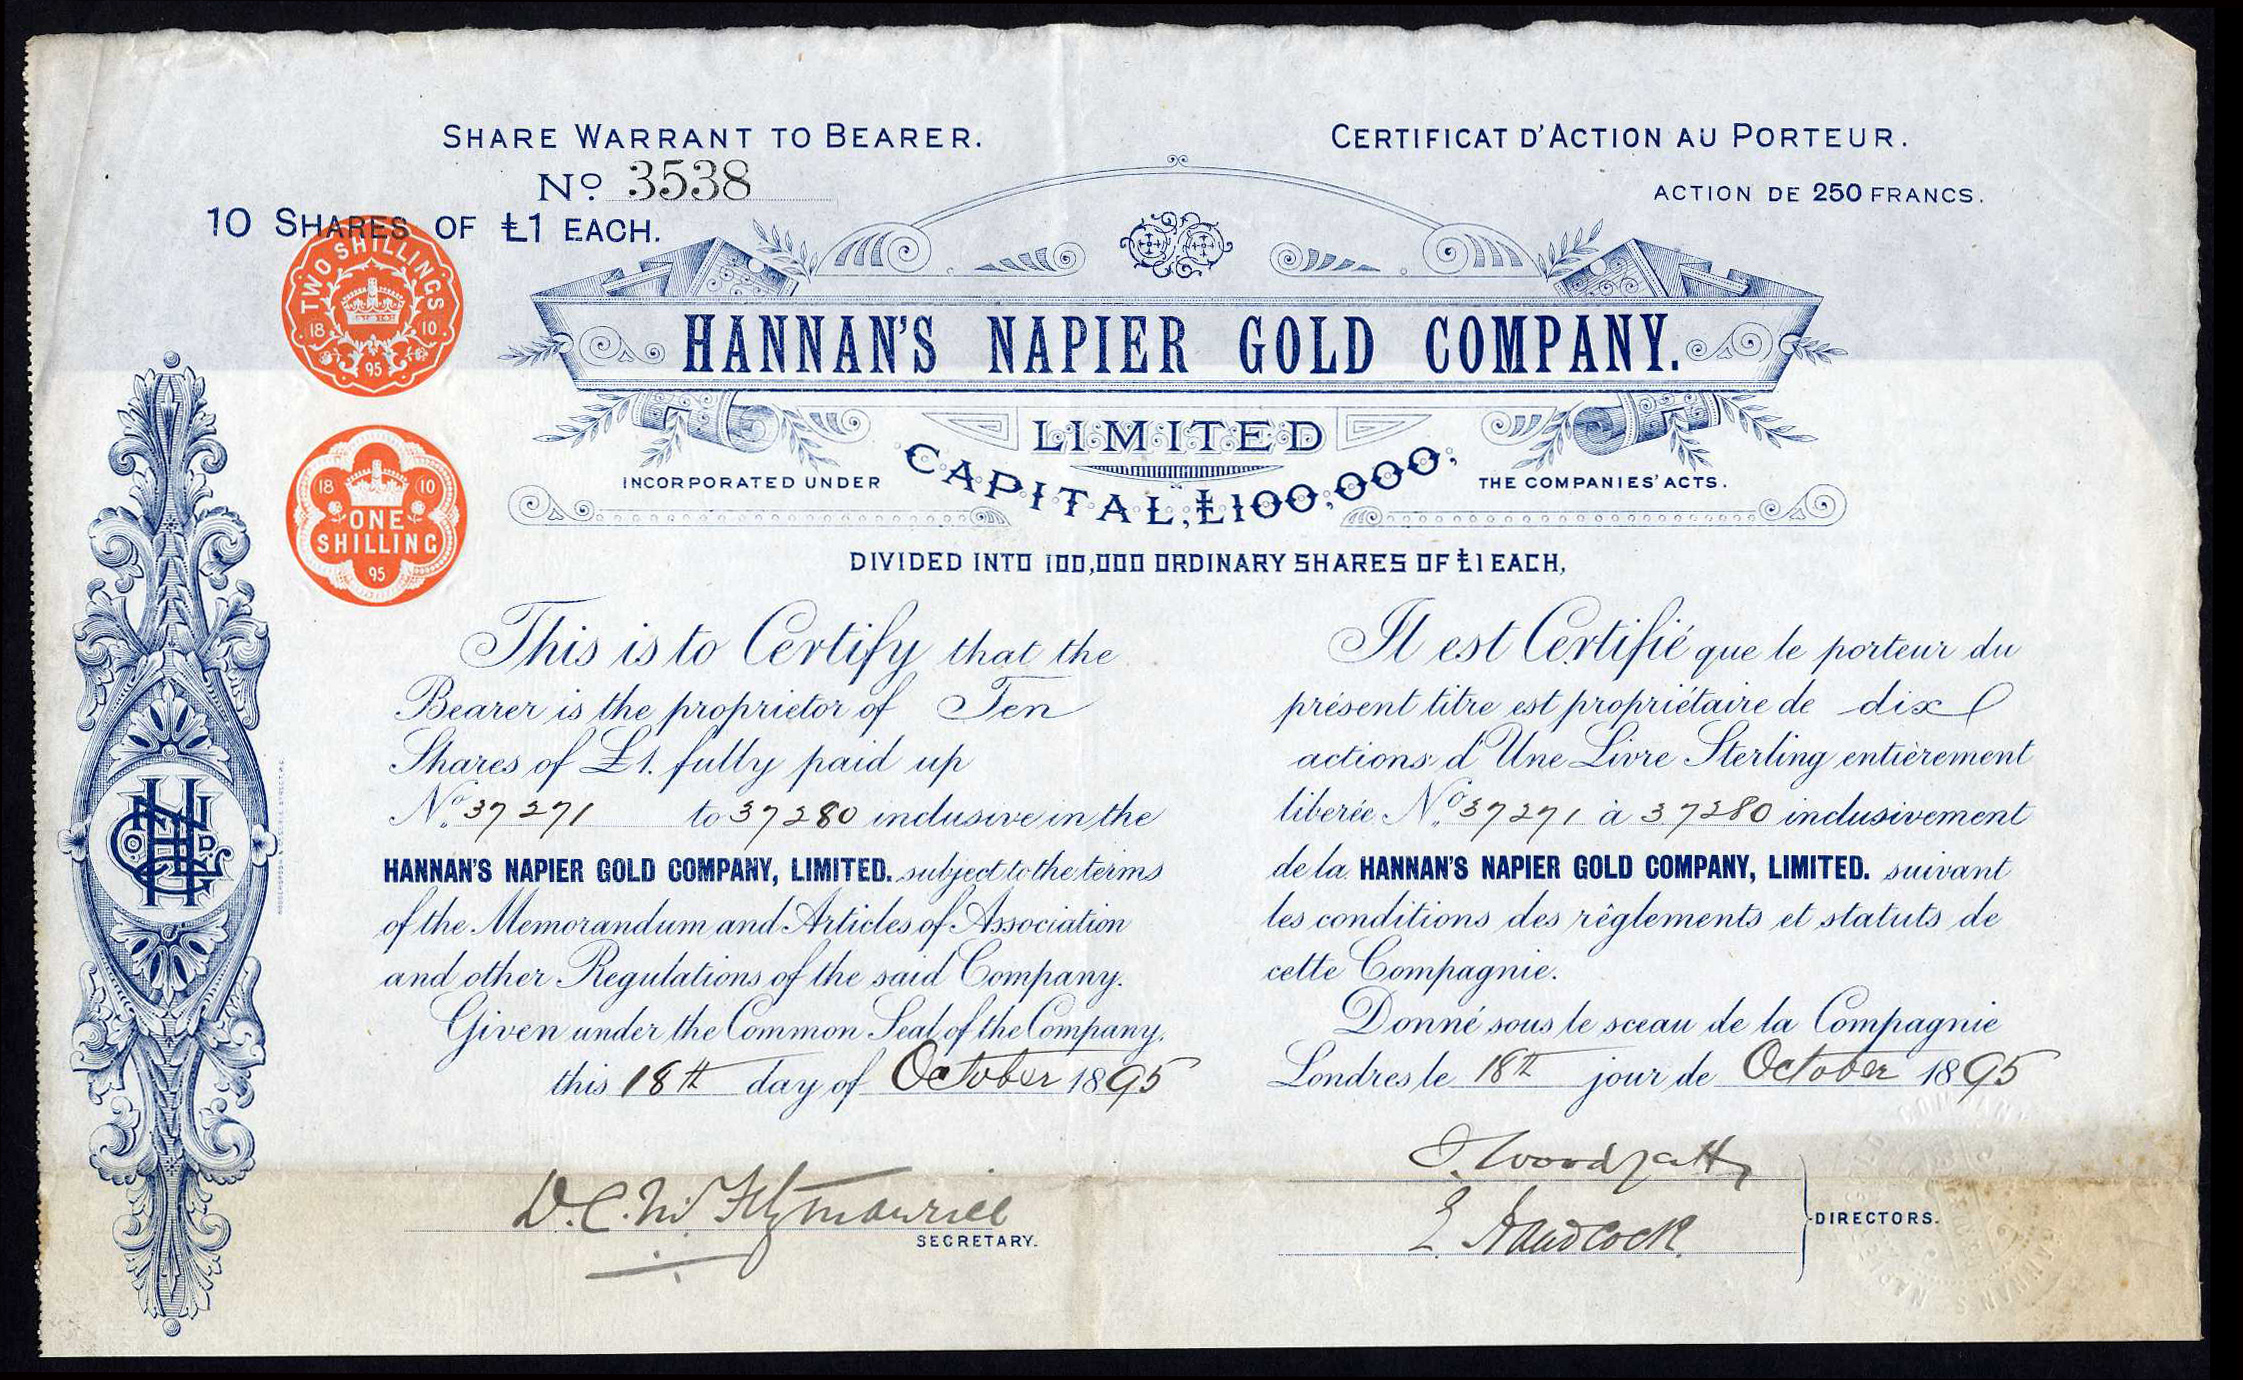 SHARE WARRANT TO BEARER.
No 3538
10 SHARES OF £1 EACH.
CERTIFICAT D'ACTION AU PORTEUR.
ACTION DE 250 FRANCS.
TWO SHILLINGS
18 10
95
HANNAN'S NAPIER GOLD COMPANY.
LIMITED
INCORPORATED UNDER
CAPITAL, £100,000;
THE COMPANIES' ACTS.
18 10
ONE
SHILLING
95
DIVIDED INTO 100,000 ORDINARY SHARES OF £1 EACH,
This is to Certify that the
Bearer is the proprietor of Ten
Shares of £1. fully paid up
No. 37271 to 37280 inclusive in the
HANNAN'S NAPIER GOLD COMPANY, LIMITED. subject to the terms
of the Memorandum and Articles of Association
and other Regulations of the said Company.
Given under the Common Seal of the Company,
this 18th day of October 1895
Il est Certifié que le porteur du
présent titre est propriétaire de dix
actions d'Une Livre Sterling entièrement
liberée No. 37271 à 37280 inclusivement
de la HANNAN'S NAPIER GOLD COMPANY, LIMITED. suivant
les conditions des règlements et statuts de
cette Compagnie.
Donné sous le sceau de la Compagnie
Londres le 18th jour de October 1895
SECRETARY.
E. Handcock
DIRECTORS.